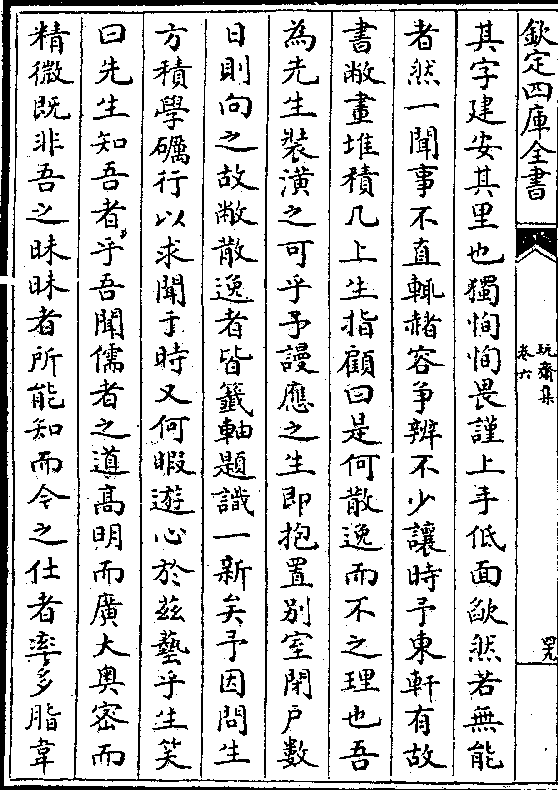 欽定四庫全書
玩齋集
卷六
四九
其字建安其里也獨恂恂畏謹上手低面歛然若無能
者然一聞事不直輒赭容争辨不少讓時予東軒有故
書敝畫堆積几上生指顧曰是何散逸而不之理也吾
為先生裝潢之可乎予謾應之生即抱置别室閉戶數
日則向之故敝散逸者皆籖軸題識一新矣予因問生
方積學礪行以求聞于時又何暇遊心於兹藝乎生笑
曰先生知吾者乎吾聞儒者之道高明而廣大奥密而
精微既非吾之昧昧者所能知而今之仕者率多脂韋